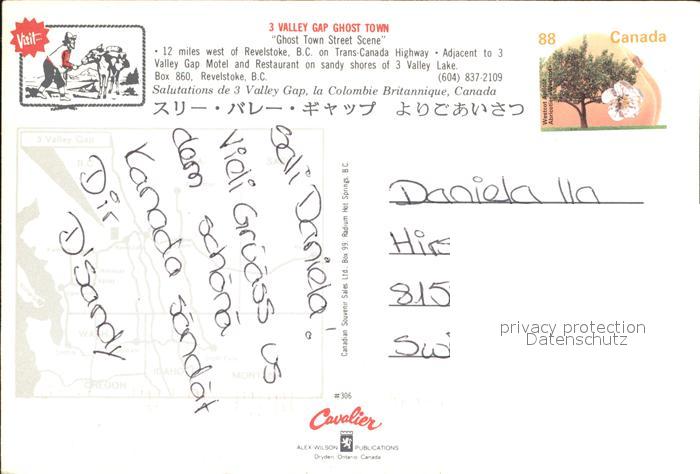 3 VALLEY GAP GHOST TOWN
"Ghost Town Street Scene"
• 12 miles west of Revelstoke, B.C. on Trans-Canada Highway • Adjacent to 3
Valley Gap Motel and Restaurant on sandy shores of 3 Valley Lake.
Box 860, Revelstoke, B.C. (604) 837-2109
Salutations de 3 Valley Gap, la Colombie Britannique, Canada
スリー・バレー・ギャップ よりごあいさつ
Visit
88 Canada
3 Valley Gap
Sali Daniela!
Vidi Grüäss us
dam schöna
Kanada sändät
Dir
D'Sandy
OREGON
Canadian Souvenir Sales Ltd., Box 99, Radium Hot Springs, B.C.
Daniela
Hir
815
Swi
privacy protection
Datenschutz
#306
Cavalier
ALEX WILSON PUBLICATIONS
Dryden, Ontario Canada